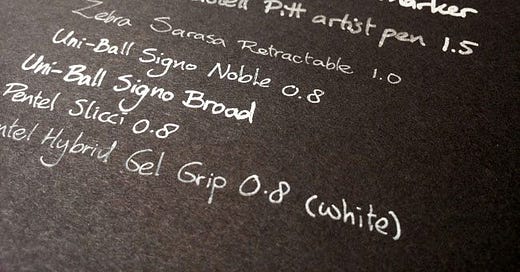 marker
Pitt artist pen 1.5
Zebra Sarasa Retractable 1.0
Uni-Ball Signo Noble 0.8
Uni-Ball Signo Broad
Pentel Slicci 0.8
ntel Hybrid Gel Grip 0.8 (white)